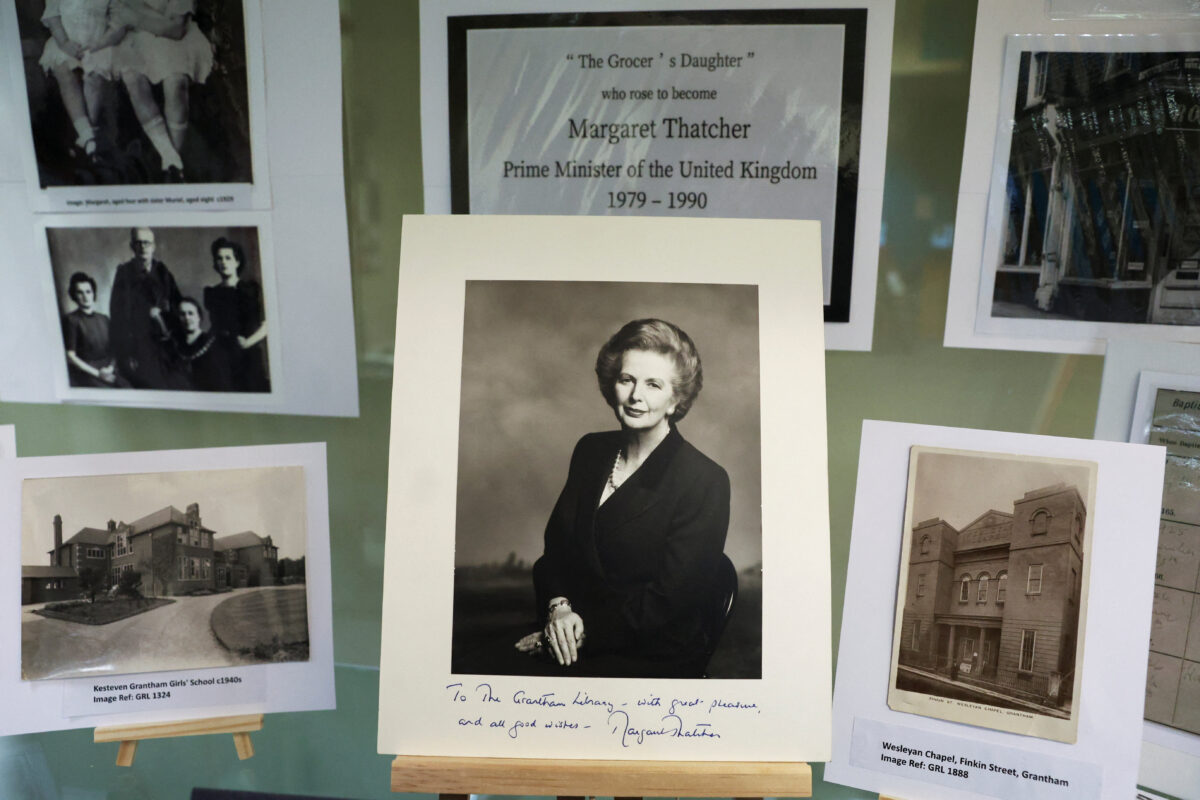 " The Grocer ' s Daughter "
who rose to become
Margaret Thatcher
Prime Minister of the United Kingdom
1979 – 1990
Image: Margaret, aged four with sister Muriel, aged eight c1929
Kesteven Grantham Girls' School c1940s
Image Ref: GRL 1324
To The Grantham Library – with great pleasure,
and all good wishes – Margaret Thatcher
FINKIN ST. WESLEYAN CHAPEL, GRANTHAM.
Wesleyan Chapel, Finkin Street, Grantham
Image Ref: GRL 1888
When
165.